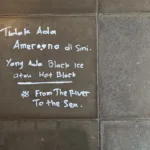 Tidak Ada
Americano di Sini.
Yang Ada Black Ice
atau Hot Black
※ From The River
To the Sea.